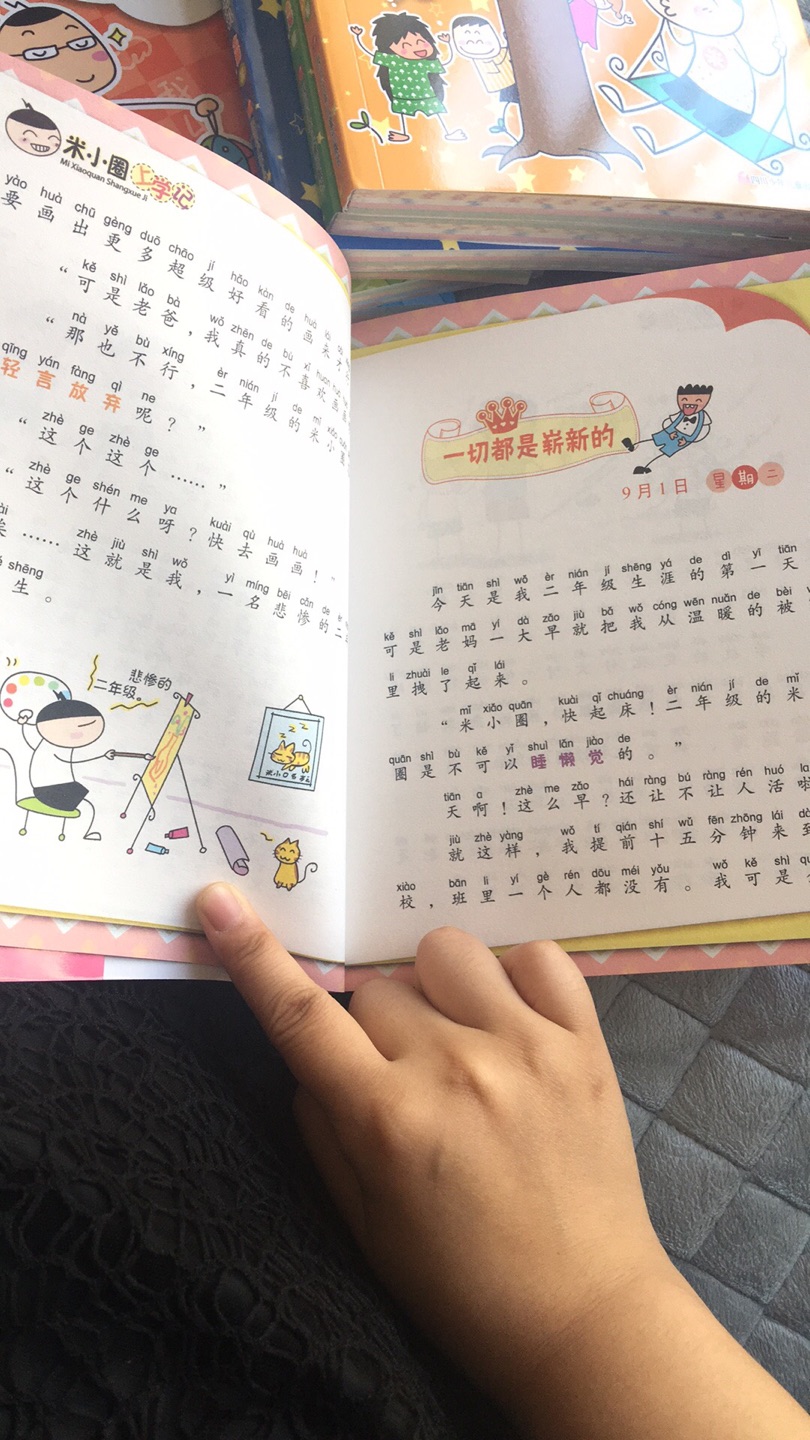 米小圈上学记
Mi Xiaoquan Shangxue Ji
yào huà chū gèng duō chāo jí hǎo kàn de huà
要画出更多超级好看的画来
kě shì lǎo bà, wǒ zhēn de bù xǐ huan
“可是老爸，我真的不喜欢画画
nà yě bù xíng, èr nián jí de mǐ xiǎo
“那也不行，二年级的米小圈
qīng yán fàng qì ne
轻言放弃呢？”
zhè ge zhè ge
“这个这个……”
zhè ge shén me ya kuài qù huà huà
“这个什么呀？快去画画！”
zhè jiù shì wǒ yì míng bēi cǎn de èr
……这就是我，一名悲惨的二
shēng
生。
悲惨的
二年级。
一切都是崭新的
9月1日 星期二
jīn tiān shì wǒ èr nián jí shēng yá de dì yī tiān
今天是我二年级生涯的第一天
kě shì lǎo mā yí dà zǎo jiù bǎ wǒ cóng wēn nuǎn de bèi
可是老妈一大早就把我从温暖的被
li zhuài le qǐ lái
里拽了起来。
mǐ xiǎo quān kuài qǐ chuáng èr nián jí de mǐ
“米小圈，快起床！二年级的米
quān shì bù kě yǐ shuì lǎn jiào de
圈是不可以睡懒觉的。”
tiān a zhè me zǎo hái ràng bú ràng rén huó la
天啊！这么早？还让不让人活啦
jiù zhè yàng wǒ tí qián shí wǔ fēn zhōng lái dào
就这样，我提前十五分钟来到
xiào bān li yí gè rén dōu méi yǒu wǒ kě shì
校，班里一个人都没有。我可是